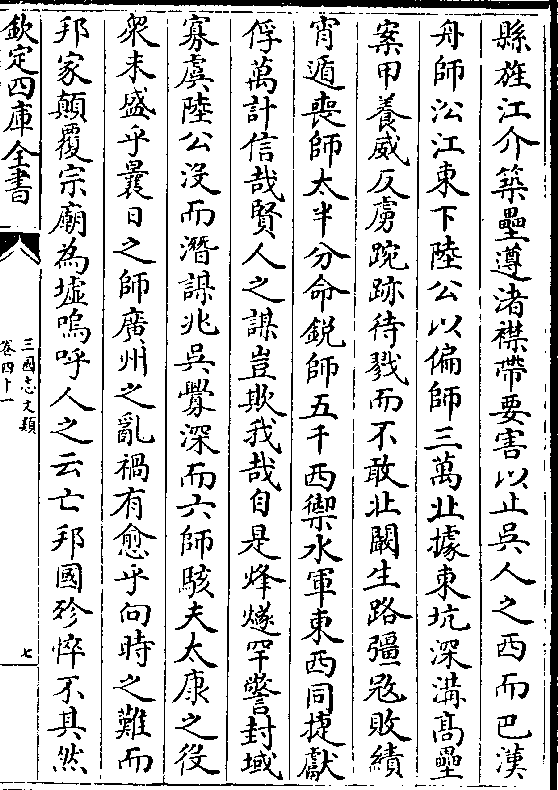 縣旌江介築壘遵渚襟帶要害以止吳人之西而巴漢
舟師㳂江東下陸公以偏師三萬北據東坑深溝髙壘
案甲養威反虜踠跡待戮而不敢北闚生路彊冦敗績
宵遁喪師太半分命鋭師五千西禦水軍東西同捷獻
俘萬計信哉賢人之謀豈欺我哉自是烽燧罕警封域
寡虞陸公没而潛謀兆吳釁深而六師駭夫太康之役
衆未盛乎曩日之師廣州之亂禍有愈乎向時之難而
邦家顛覆宗廟為墟嗚呼人之云亡邦國殄悴不其然
欽定四庫全書
三國志文類
卷四十一
七